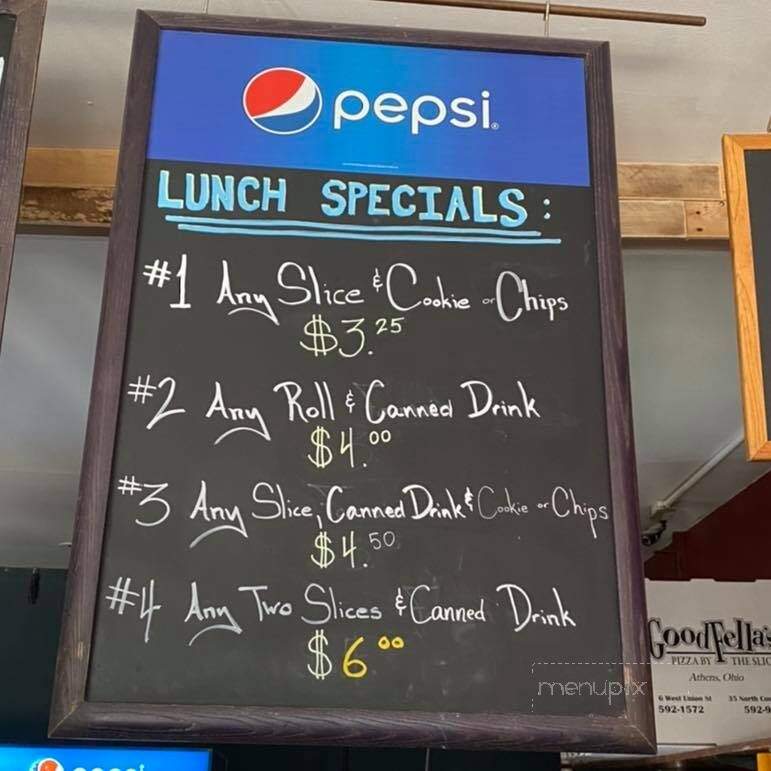 pepsi
LUNCH SPECIALS:
#1 Any Slice & Cookie or Chips
$3.25
#2 Any Roll & Canned Drink
$4.00
#3 Any Slice, Canned Drink & Cookie or Chips
$4.50
#4 Any Two Slices & Canned Drink
$6.00
menupix
GoodFella's
PIZZA BY THE SLIC
Athens, Ohio
6 West Union St 35 North Cou
592-1572 592-9